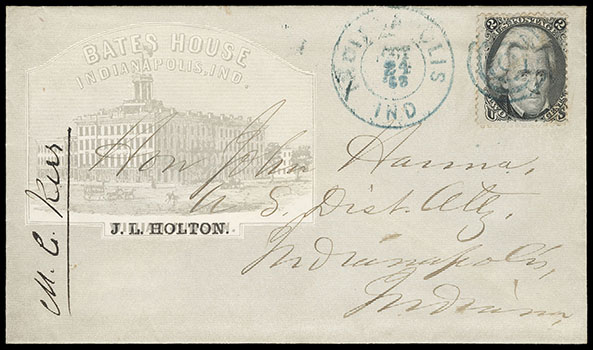 BATES HOUSE
INDIANAPOLIS, IND.
J. L. HOLTON.
INDIANAPOLIS
IND
U.S. POSTAGE
2 2
Hon John Hanna,
U S. Dist. Atty,
Indianapolis,
Indiana,
M. C. Kerr